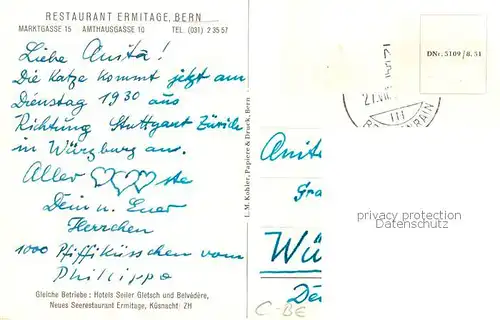 RESTAURANT ERMITAGE, BERN
MARKTGASSE 15 AMTHAUSGASSE 10 TEL. (031) 2 35 57
Liebe Anita!
Die Katze kommt jetzt am
Dienstag 1930 aus
Richtung Stuttgart Zürich
in Würzburg an.
Aller ste
Dein u. Euer
Herrchen
1000 Pfiffiküsschen vom
Philippo
Gleiche Betriebe: Hotels Seiler Gletsch und Belvédère,
Neues Seerestaurant Ermitage, Küsnacht ZH
L. M. Kohler, Papiere & Druck, Bern
DNr. 5109/8.51
III
RAIN
Anit
Gra
privacy protection
Datenschutz
Wü
De
C-BE